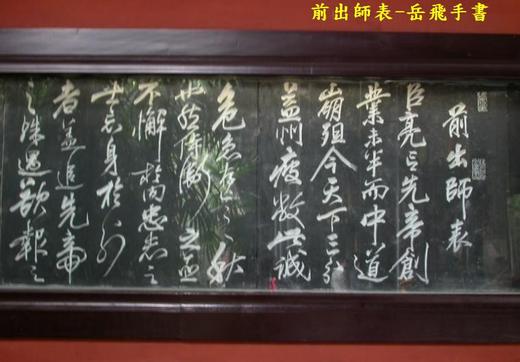 前出師表-岳飛手書
前出師表
臣亮言先帝創
業未半而中道
崩殂今天下三分
益州疲敝此誠
危急存亡之秋
也然侍衛之臣
不懈於內忠志之
士忘身於外
者蓋追先帝
之殊遇欲報之